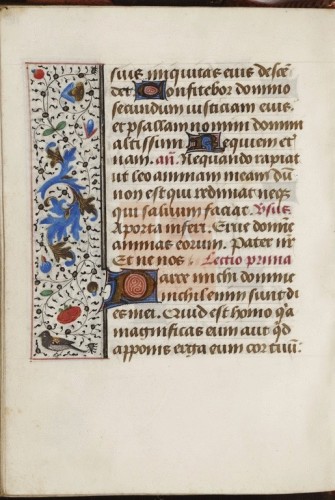 suis iniquitas eius descē
det. Confitebor domino
secundum iusticiam eius.
et psallam nomini domini
altissimi. Requiem et
nam. añ. Nequando rapiat
ut leo animam meam dū
non est qui redimat neqz
qui saluum faciat. Vsus
A porta inferi. Erue domīe
animas eorum. Pater nr̄
Et ne nos. Lectio prima
Parce michi domine
nichil enim sunt di
es mei. Quid est homo qa
magnificas eum aut qd
apponis erga eum cor tuū.